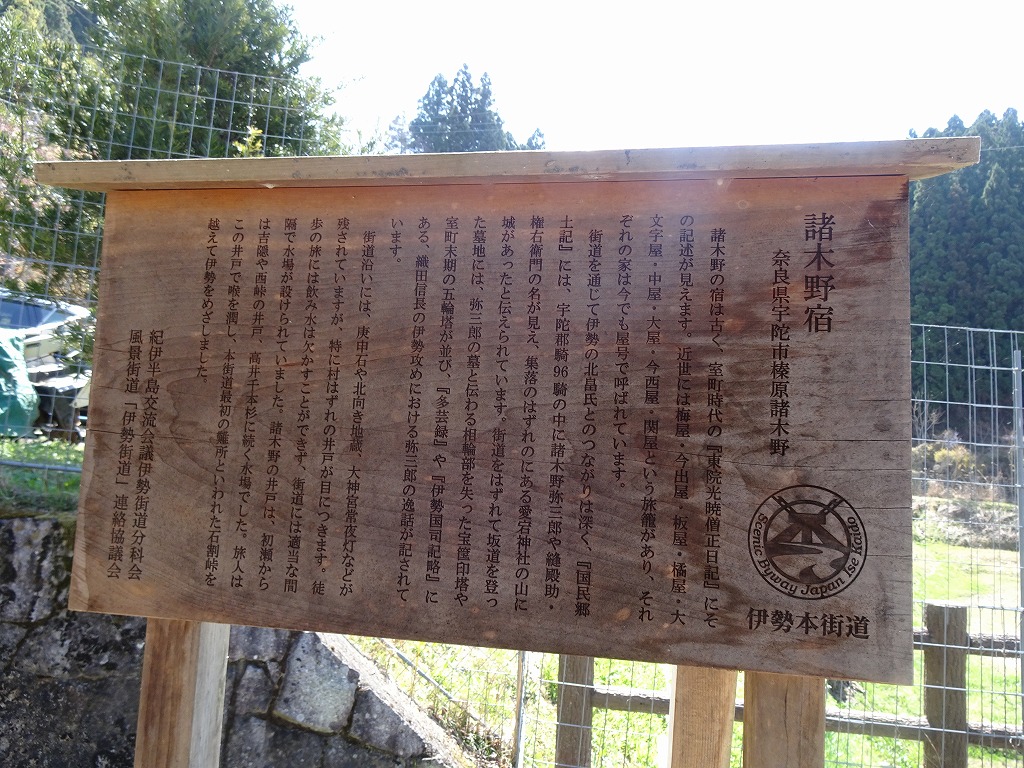 諸木野宿
奈良県宇陀市榛原諸木野
諸木野の宿は古く、室町時代の『東院光暁僧正日記』にそ
の記述が見えます。近世には梅屋・今出屋・板屋・橘屋・大
文字屋・中屋・大屋・今西屋・関屋という旅籠があり、それ
ぞれの家は今でも屋号で呼ばれています。
街道を通じて伊勢の北畠氏とのつながりは深く、『国民郷
土記』には、宇陀郡騎96騎の中に諸木野弥三郎や縫殿助・
権右衛門の名が見え、集落のはずれのにある愛宕神社の山に
城があったと伝えられています。街道をはずれて坂道を登っ
た墓地には、弥三郎の墓と伝わる相輪部を失った宝筺印塔や
室町末期の五輪塔が並び、『多芸録』や『伊勢国司記略』に
ある、織田信長の伊勢攻めにおける弥三郎の逸話が記されて
います。
街道沿いには、庚申石や北向き地蔵、大神宮常夜灯などが
残されていますが、特に村はずれの井戸が目につきます。徒
歩の旅には飲み水は欠かすことができず、街道には適当な間
隔で水場が設けられていました。諸木野の井戸は、初瀬から
は吉隠や西峠の井戸、高井千本杉に続く水場でした。旅人は
この井戸で喉を潤し、本街道最初の難所といわれた石割峠を
越えて伊勢をめざしました。
紀伊半島交流会議伊勢街道分科会
風景街道「伊勢街道」連絡協議会
Scenic Byway Japan Ise Kaido
伊勢本街道